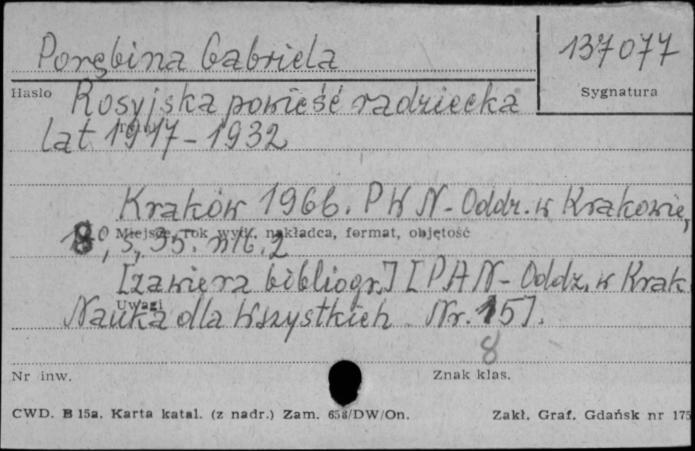 Porębina Gabriela
137077
Hasło
Sygnatura
Rosyjska powieść radziecka
lat 1917-1932
Kraków 1966. PWN-Oddz. w Krakowie,
8°, s. 55. nlb. 2
Miejsce, rok wyd., nakładca, format, objętość
[zawiera bibliogr.] [PAN-Oddz. w Krak
Uwagi
Nauka dla Wszystkich Nr. 15].
8
Nr inw.
Znak klas.
CWD. B 15a. Karta katal. (z nadr.) Zam. 658/DW/On.
Zakł. Graf. Gdańsk nr 175